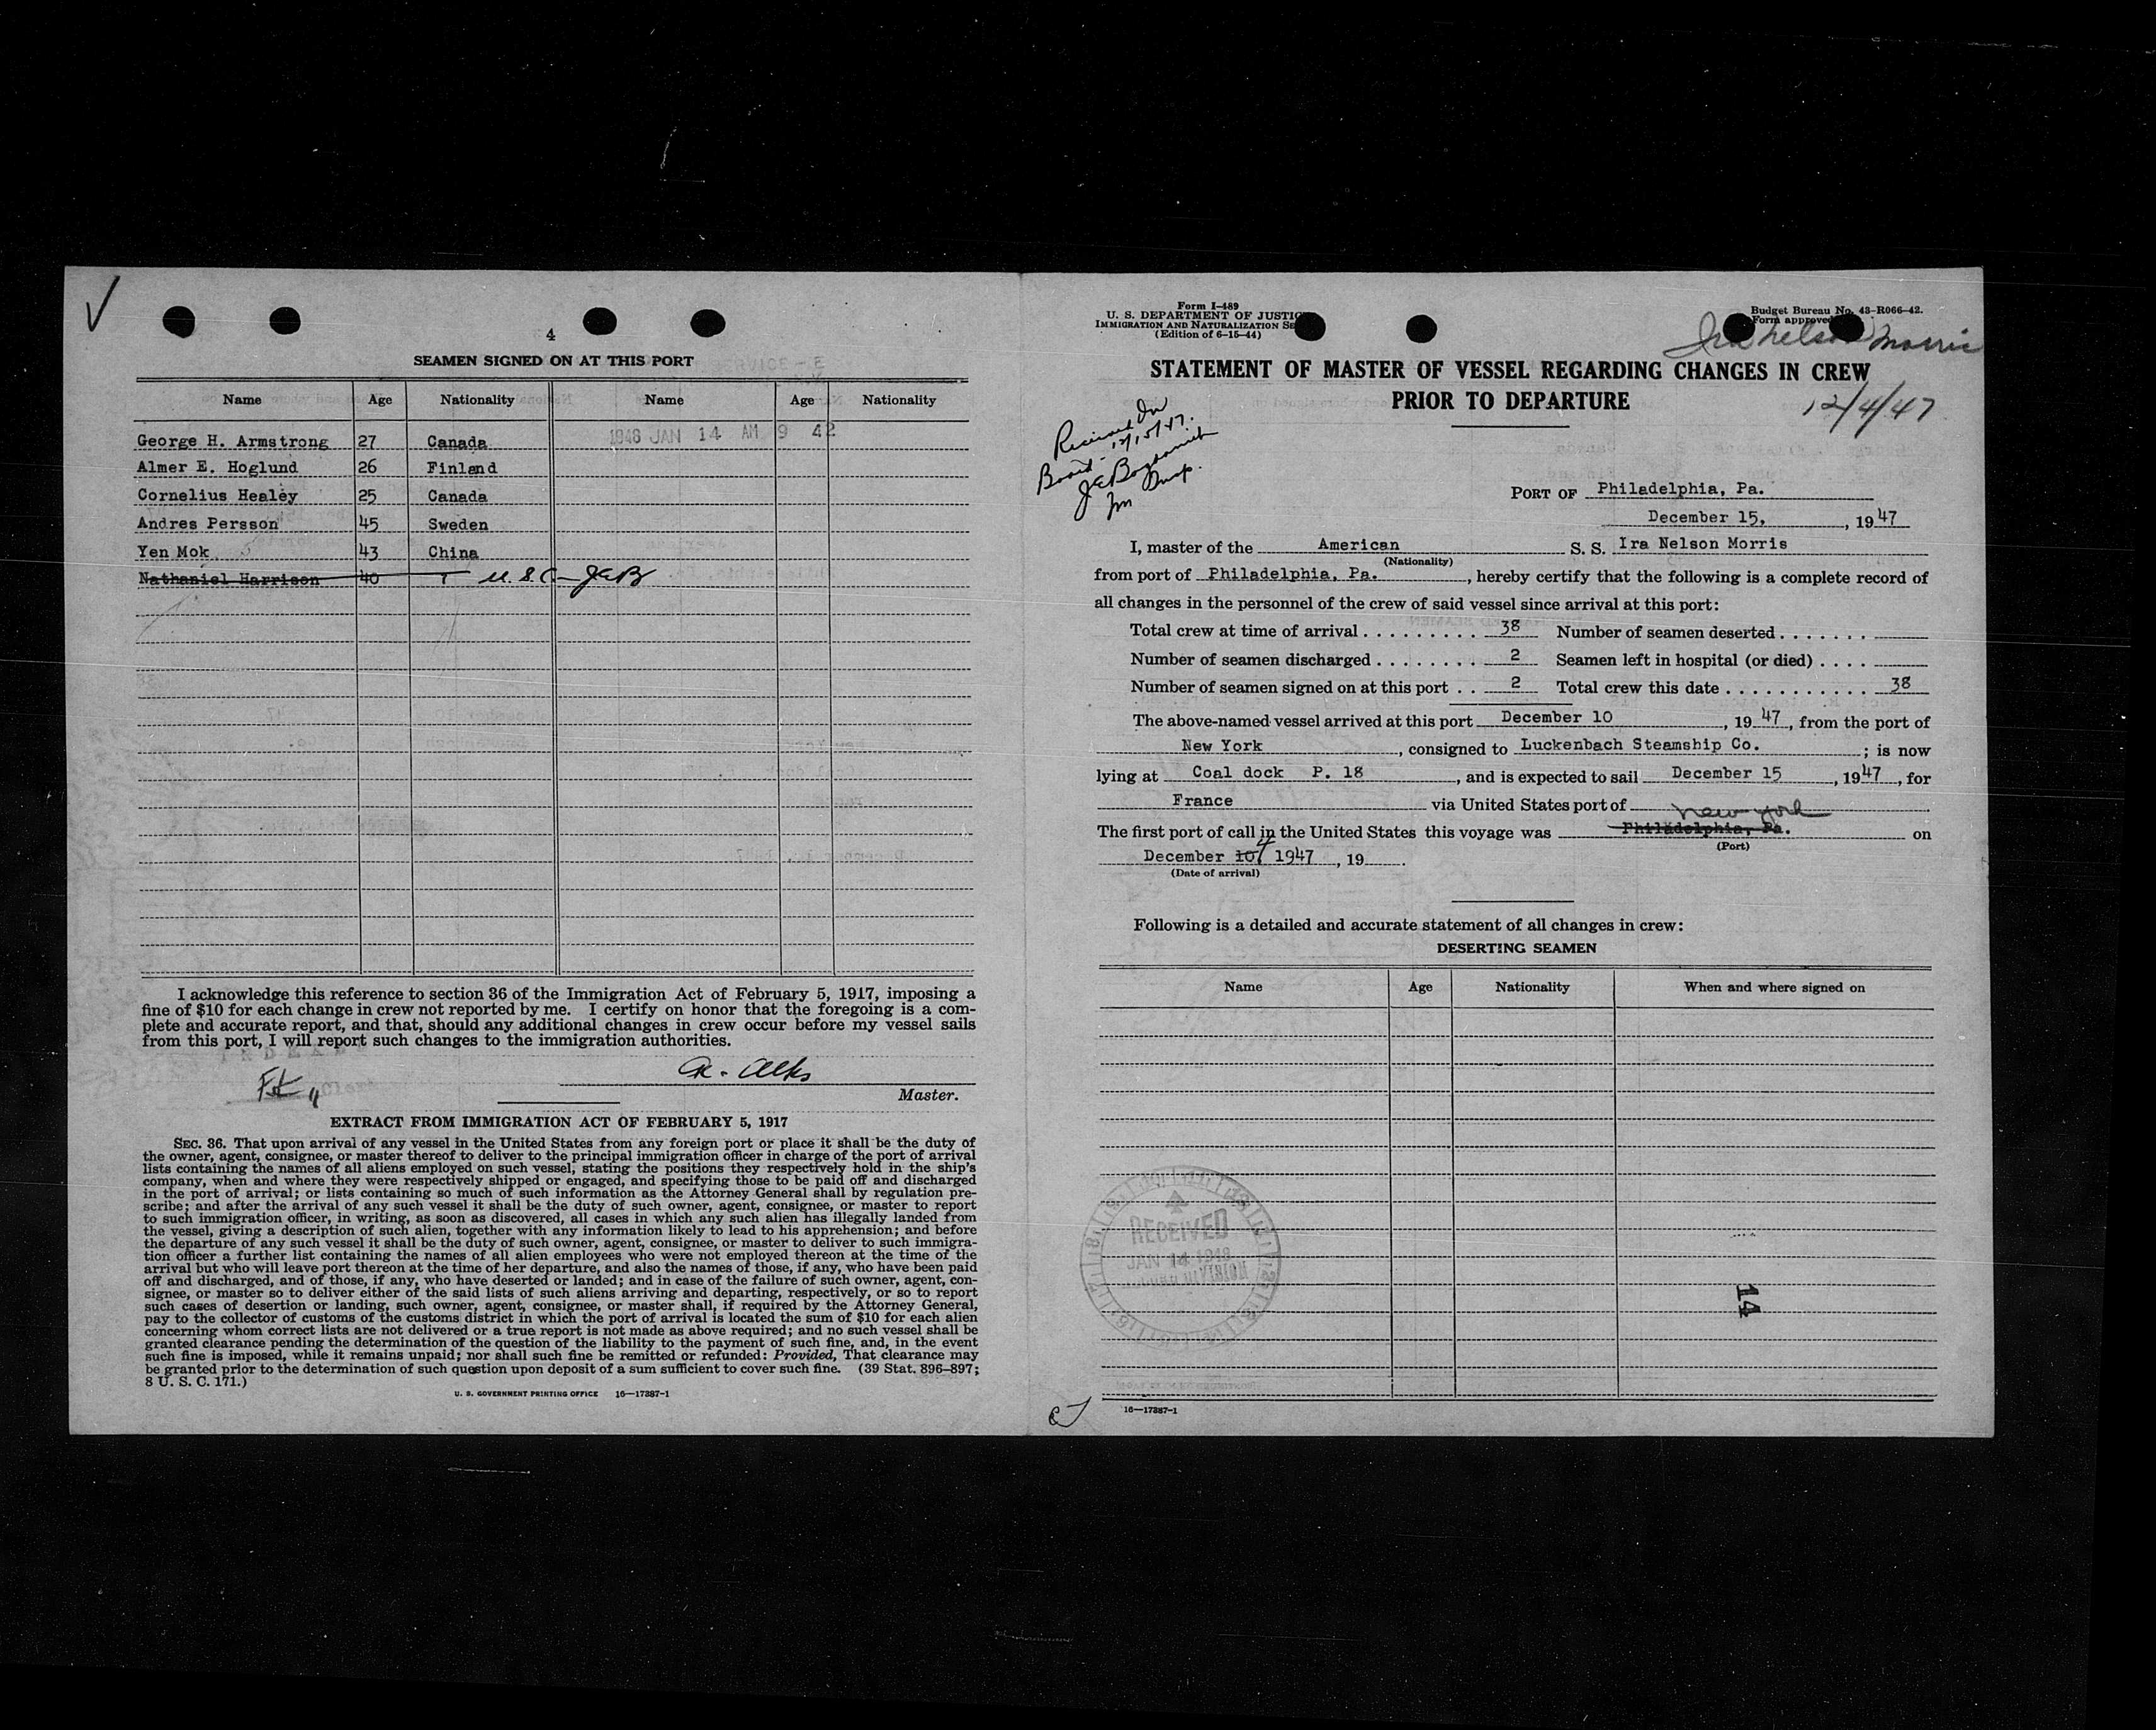 4
SEAMEN SIGNED ON AT THIS PORT
Name Age Nationality Name Age Nationality
1948 JAN 14 AM 9 42
George H. Armstrong 27 Canada
Almer E. Hoglund 26 Finland
Cornelius Healey 25 Canada
Andres Persson 45 Sweden
Yen Mok 43 China
Nathaniel Harrison 40 U.S.C. - JEB
I acknowledge this reference to section 36 of the Immigration Act of February 5, 1917, imposing a
fine of $10 for each change in crew not reported by me. I certify on honor that the foregoing is a com-
plete and accurate report, and that, should any additional changes in crew occur before my vessel sails
from this port, I will report such changes to the immigration authorities.
Master.
EXTRACT FROM IMMIGRATION ACT OF FEBRUARY 5, 1917
SEC. 36. That upon arrival of any vessel in the United States from any foreign port or place it shall be the duty of
the owner, agent, consignee, or master thereof to deliver to the principal immigration officer in charge of the port of arrival
lists containing the names of all aliens employed on such vessel, stating the positions they respectively hold in the ship's
company, when and where they were respectively shipped or engaged, and specifying those to be paid off and discharged
in the port of arrival; or lists containing so much of such information as the Attorney General shall by regulation pre-
scribe; and after the arrival of any such vessel it shall be the duty of such owner, agent, consignee, or master to report
to such immigration officer, in writing, as soon as discovered, all cases in which any such alien has illegally landed from
the vessel, giving a description of such alien, together with any information likely to lead to his apprehension; and before
the departure of any such vessel it shall be the duty of such owner, agent, consignee, or master to deliver to such immigra-
tion officer a further list containing the names of all alien employees who were not employed thereon at the time of the
arrival but who will leave port thereon at the time of her departure, and also the names of those, if any, who have been paid
off and discharged, and of those, if any, who have deserted or landed; and in case of the failure of such owner, agent, con-
signee, or master so to deliver either of the said lists of such aliens arriving and departing, respectively, or so to report
such cases of desertion or landing, such owner, agent, consignee, or master shall, if required by the Attorney General,
pay to the collector of customs of the customs district in which the port of arrival is located the sum of $10 for each alien
concerning whom correct lists are not delivered or a true report is not made as above required; and no such vessel shall be
granted clearance pending the determination of the question of the liability to the payment of such fine, and, in the event
such fine is imposed, while it remains unpaid; nor shall such fine be remitted or refunded: Provided, That clearance may
be granted prior to the determination of such question upon deposit of a sum sufficient to cover such fine. (39 Stat. 896-897;
8 U. S. C. 171.)
U. S. GOVERNMENT PRINTING OFFICE 16—17387-1
Form I-489
U. S. DEPARTMENT OF JUSTIC
IMMIGRATION AND NATURALIZATION SE
(Edition of 6-15-44)
Budget Bureau No. 43-R066-42.
Form approved
Ira Nelson Morris
STATEMENT OF MASTER OF VESSEL REGARDING CHANGES IN CREW
PRIOR TO DEPARTURE
12/4/47
Received On
Board - 12/15/47.
PORT OF Philadelphia, Pa.
December 15, , 1947
I, master of the American S. S. Ira Nelson Morris
(Nationality)
from port of Philadelphia, Pa. , hereby certify that the following is a complete record of
all changes in the personnel of the crew of said vessel since arrival at this port:
Total crew at time of arrival . . . . . . . . . 38 Number of seamen deserted . . . . . . .
Number of seamen discharged . . . . . . . . 2 Seamen left in hospital (or died) . . . .
Number of seamen signed on at this port . . 2 Total crew this date . . . . . . . . . . . 38
The above-named vessel arrived at this port December 10 , 1947, from the port of
New York , consigned to Luckenbach Steamship Co. ; is now
lying at Coal dock P. 18 , and is expected to sail December 15 , 1947, for
France via United States port of
New York
The first port of call in the United States this voyage was Philadelphia, Pa. on
(Port)
December 10 4 1947 , 19 .
(Date of arrival)
Following is a detailed and accurate statement of all changes in crew:
DESERTING SEAMEN
Name Age Nationality When and where signed on
RECEIVED
JAN 14 1948
DIVISION
14
16—17387-1